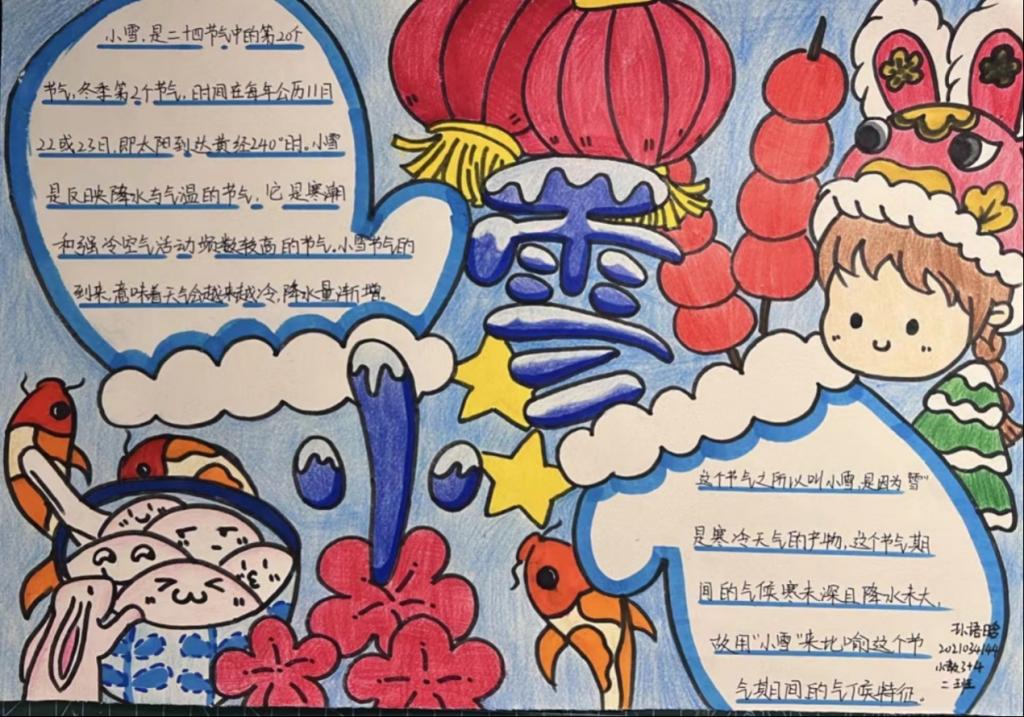 小雪，是二十四节气中的第20个
节气，冬季第2个节气，时间在每年公历11月
22或23日，即太阳到达黄经240°时。小雪
是反映降水与气温的节气，它是寒潮
和强冷空气活动频数较高的节气。小雪节气的
到来，意味着天气会越来越冷，降水量渐增。
小雪
这个节气之所以叫小雪，是因为"雪"
是寒冷天气的产物，这个节气期
间的气候寒未深且降水未大，
故用"小雪"来比喻这个节
气期间的气候特征。
孙语晗
2021034144
小教3+4
二班